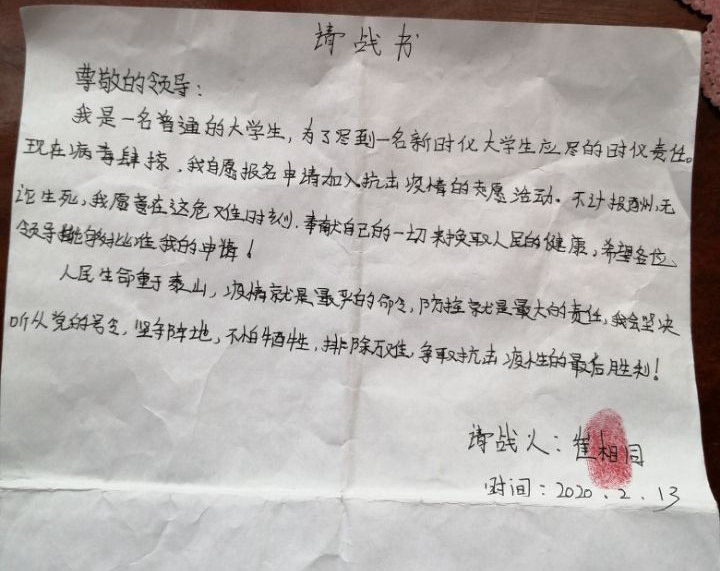 请战书
尊敬的领导：
我是一名普通的大学生，为了尽到一名新时代大学生应尽的时代责任。
现在病毒肆掠，我自愿报名申请加入抗击疫情的志愿活动。不计报酬，无
论生死，我愿意在这危难时刻，奉献自己的一切来换取人民的健康，希望各位
领导能够批准我的申请！
人民生命重于泰山，疫情就是最具的命令，防控就是最大的责任，我会坚决
听从党的号令，坚守阵地，不怕牺牲，排除万难，争取抗击疫性的最后胜利！
请战人：崔相同
时间：2020.2.13